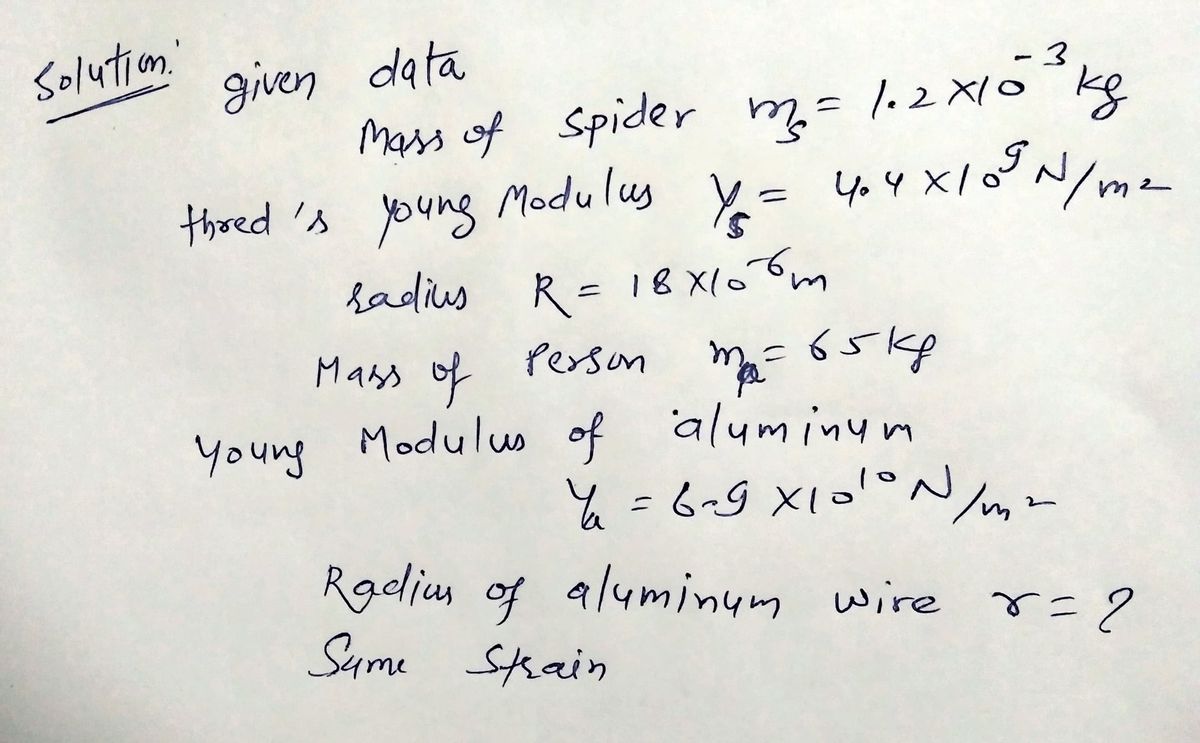 Solution:
given data
Mass of spider mₛ = 1.2 ×10⁻³ kg
thred's young Modulus Yₛ = 4.4 ×10⁹ N/m²
radius R = 18 ×10⁻⁶ m
Mass of Person mₚ = 65 kg
Young Modulus of aluminum
Yₐ = 6.9 ×10¹⁰ N/m²
Radius of aluminum wire r = ?
Same Strain